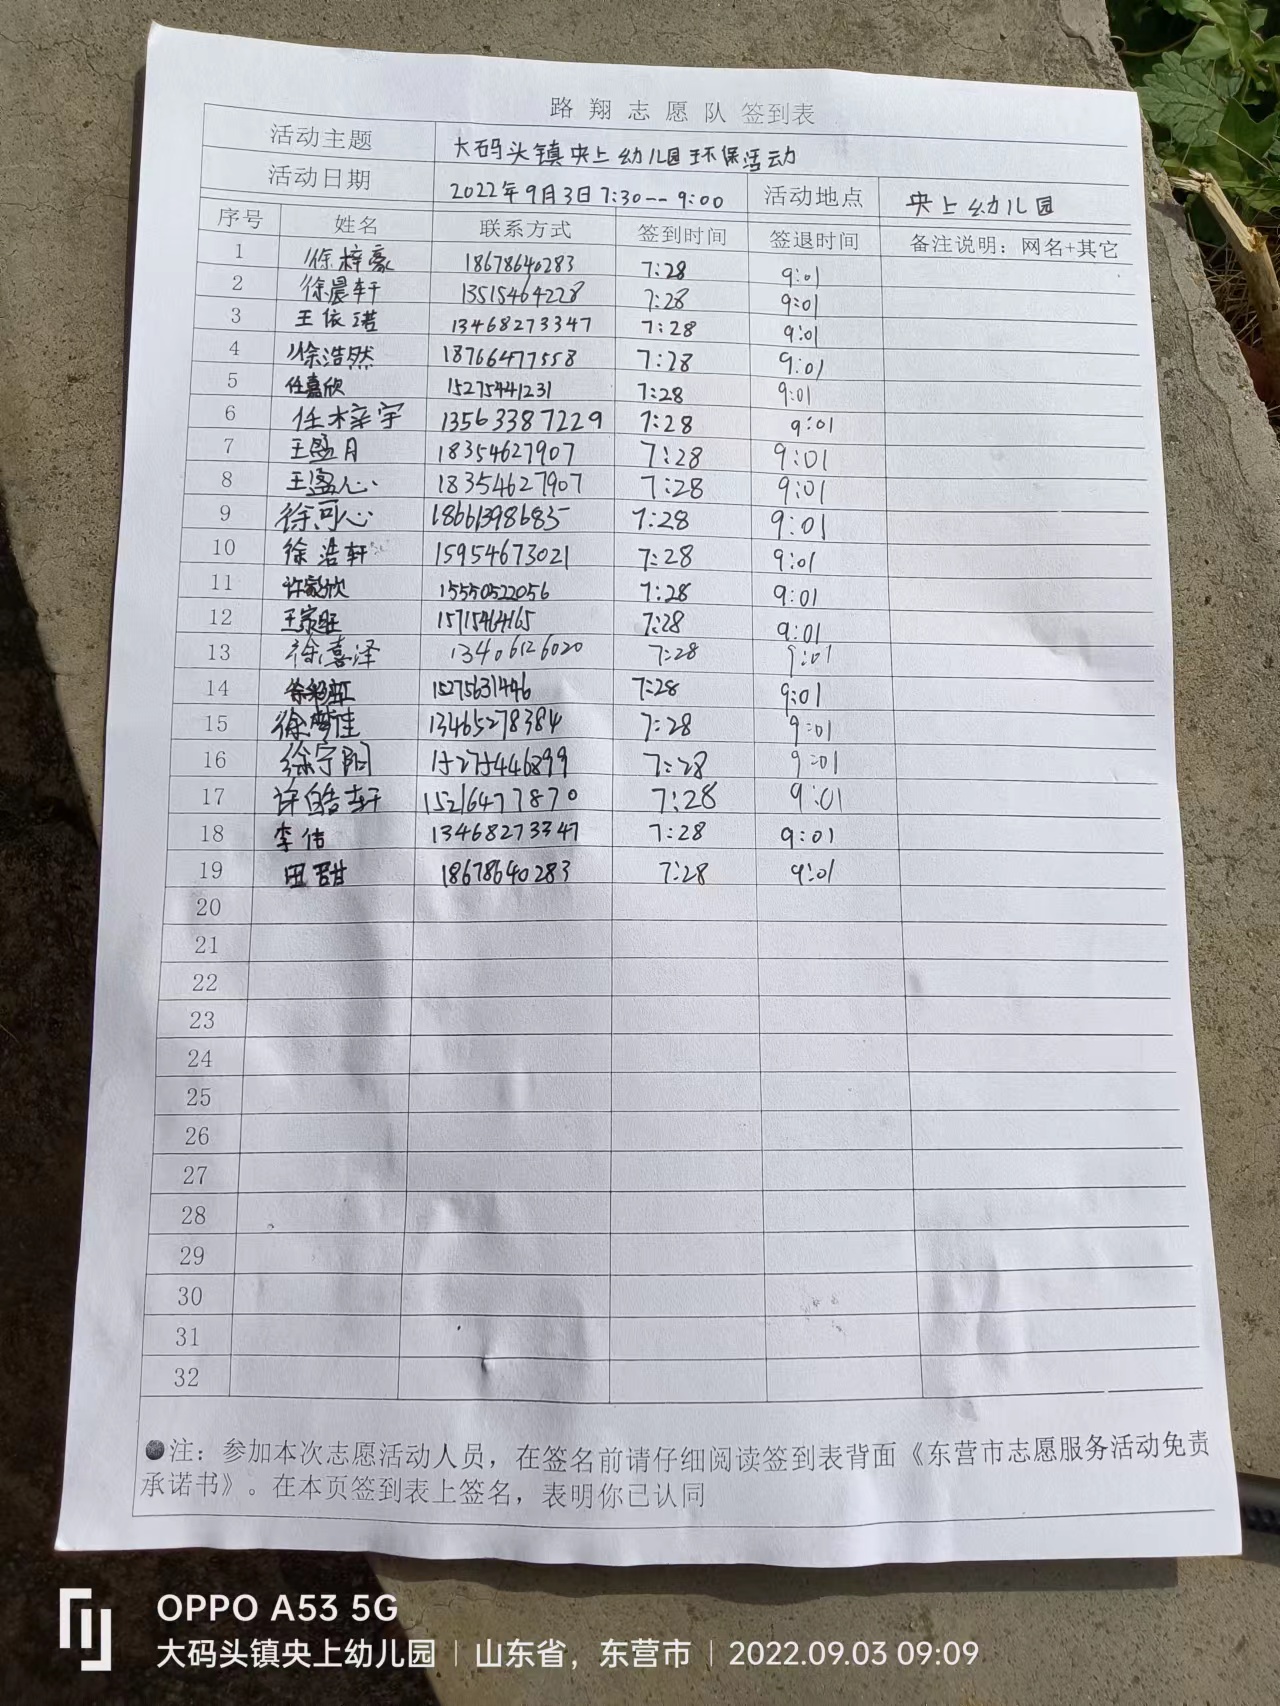 路翔志愿队签到表
活动主题 大码头镇央上幼儿园环保活动
活动日期 2022年9月3日7:30--9:00 活动地点 央上幼儿园
序号 姓名 联系方式 签到时间 签退时间 备注说明：网名+其它
1 徐梓豪 18678640283 7:28 9:01
2 徐晨轩 13515464228 7:28 9:01
3 王依诺 13468273347 7:28 9:01
4 徐浩然 18766477558 7:28 9:01
5 任嘉欣 15275441231 7:28 9:01
6 任梓宇 13563387229 7:28 9:01
7 王盈月 18354627907 7:28 9:01
8 王盈心 18354627907 7:28 9:01
9 徐可心 18661398685 7:28 9:01
10 徐浩轩 15954673021 7:28 9:01
11 许家欣 15550522056 7:28 9:01
12 王家旺 15715464165 7:28 9:01
13 徐喜泽 13406126020 7:28 9:01
14 15275631446 7:28 9:01
15 徐梦佳 13465278384 7:28 9:01
16 徐宁阳 15275446899 7:28 9:01
17 许皓轩 15216477870 7:28 9:01
18 李佶 13468273347 7:28 9:01
19 田甜 18678640283 7:28 9:01
20
21
22
23
24
25
26
27
28
29
30
31
32
●注：参加本次志愿活动人员，在签名前请仔细阅读签到表背面《东营市志愿服务活动免责
承诺书》。在本页签到表上签名，表明你已认同
OPPO A53 5G
大码头镇央上幼儿园 | 山东省，东营市 | 2022.09.03 09:09